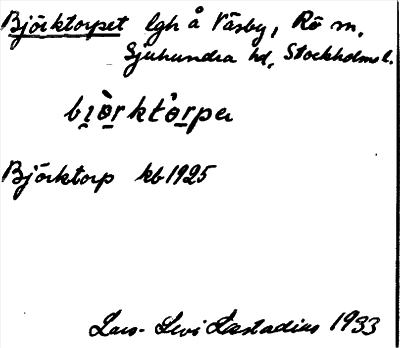 Björktorpet lgh å Väsby, Rö sn,
Sjuhundra hd, Stockholms l.
bi̯ò̱ṟktò̱ṟpa
Björktorp kb 1925
Lars-Levi Læstadius 1933